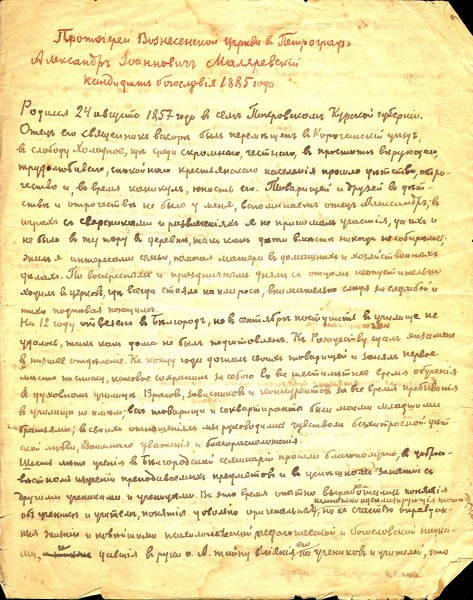 Протоіерей Вознесенской церкви в Петроградѣ
Александръ Іоанновичъ Маляревскій
кандидатъ богословія 1885 года.
Родился 24 августа 1857 года в селѣ Покровском Курской губерніи.
Отец его священник вскорѣ был перемѣщен в Корочанскій уѣзд,
в слободу Холодное, гдѣ среди скромнаго, честнаго, в простотѣ вѣрующаго,
трудолюбиваго, спокойнаго крестьянскаго населенія прошло дѣтство, отро-
чество и, во время каникул, юность его. Товарищей и друзей в дѣт-
ствѣ и отрочествѣ не было у меня, вспоминает отец Александръ; в
играх со сверстниками и развлеченіях я не принимал участія, да их и
не было в ту пору в деревнѣ, так как дѣти вмѣстѣ никогда не собирались.
Жил я интересами семьи, помогал матери в домашних и хозяйственных
дѣлах. По воскресным и праздничным дням с отцом неопустительно
ходил в церковь, гдѣ всегда стоял на клиросѣ, внимательно слѣдя за службой и
тихо подпѣвая певцам.
На 12 году отвезен в Бѣлгород, но в сентябрѣ поступить в училище не
удалось, так как дома не был подготовлен. К Рождеству сдал экзамен
в низшее отдѣленіе. К концу года догнал своих товарищей и занял первое
мѣсто по списку, каковое сохранил за собою во все шестилѣтнее время обученія
в духовном училищѣ. Врагов, завистников и конкурентов за все время пребыванія
в училищѣ не имѣл; всѣ товарищи и соквартиранты были моими младшими
братьями; в своих отношеніях мы руководились чувством безхитростной дѣт-
ской любви, взаимнаго уваженія и благорасположенія.
Шесть лѣт ученія в Бѣлгородской семинаріи прошли благополучно, в добро-
совѣстном изученіи преподаваемых предметов и в успѣшном занятіи с
другими учениками и ученицами. Во это время опыта выработались понятія
об ученіи и учителѣ, понятія довольно оригинальныя, но к счастью оправдан-
ныя жизнью и новѣйшими психологической педагогической и богословской наука-
ми, давшія в руки о. А. тайну вліянія на учеников и учителей, что